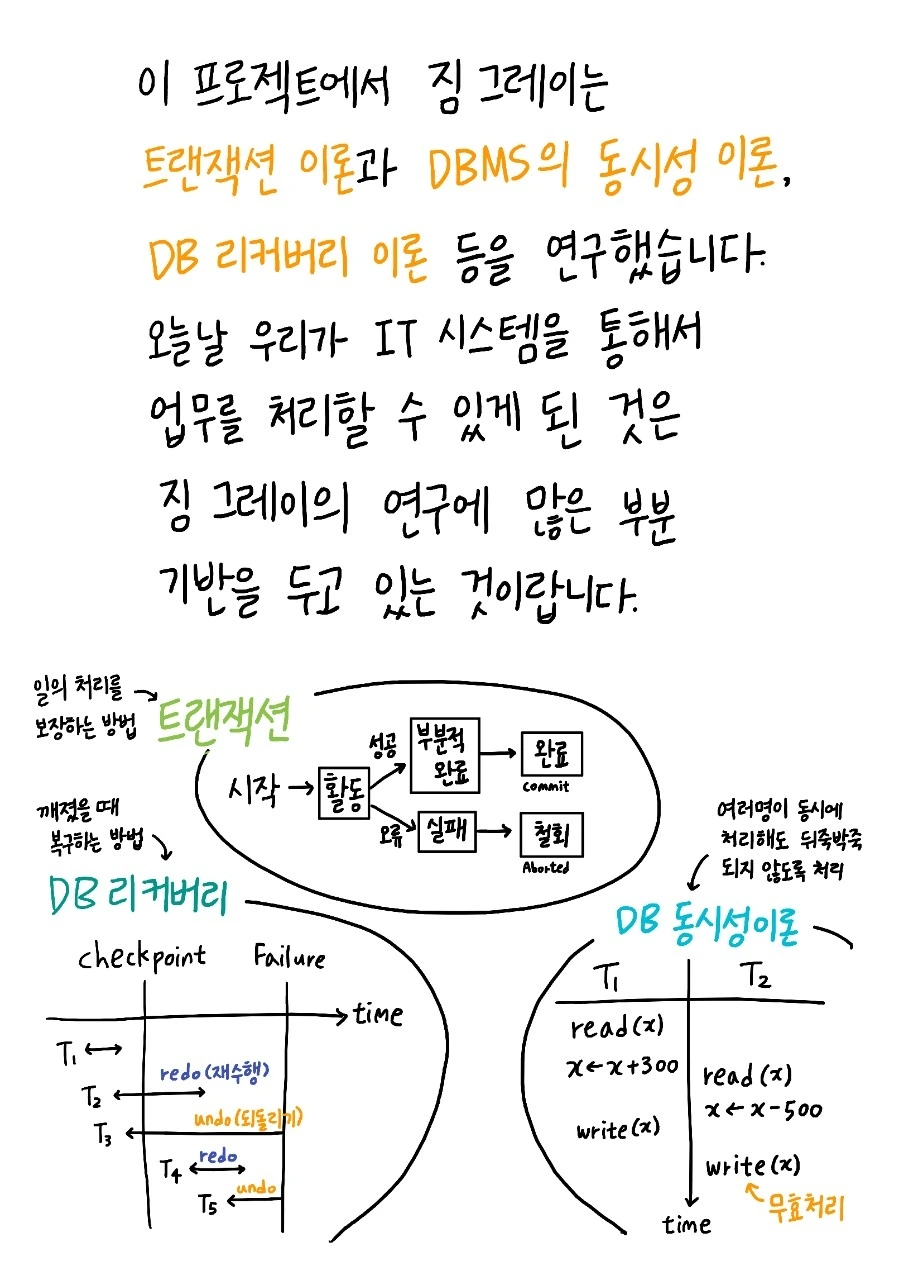 이 프로젝트에서 짐 그레이는
트랜잭션 이론과 DBMS의 동시성 이론,
DB 리커버리 이론 등을 연구했습니다.
오늘날 우리가 IT 시스템을 통해서
업무를 처리할 수 있게 된 것은
짐 그레이의 연구에 많은 부분
기반을 두고 있는 것이랍니다.
일의 처리를
보장하는 방법
트랜잭션
시작
활동
성공
부분적
완료
완료
Commit
오류
실패
철회
Aborted
깨졌을 때
복구하는 방법
DB 리커버리
checkpoint
Failure
time
T1
redo(재수행)
T2
undo(되돌리기)
T3
redo
T4
undo
T5
여러명이 동시에
처리해도 뒤죽박죽
되지 않도록 처리
DB 동시성이론
T1
T2
read(x)
x←x+300
read(x)
x←x-500
write(x)
write(x)
무효처리
time